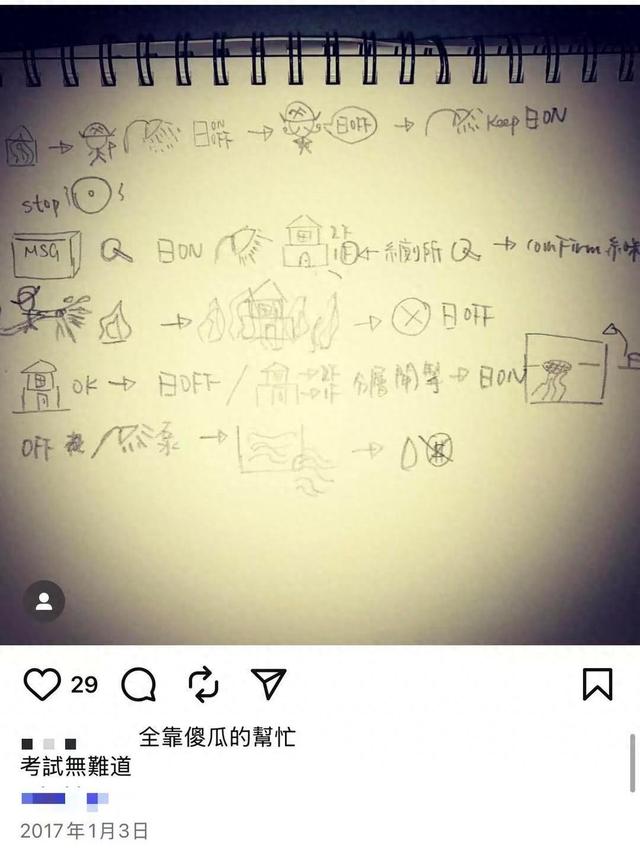 日ON OFF 日OFF Keep 日ON
stop
MSG 日ON 2F 1F 廁所 comfirm
日OFF
OK 日OFF / 2F 1F 分層開掣 日ON
OFF 泵
29
全靠傻瓜的幫忙
考試無難道
2017年1月3日